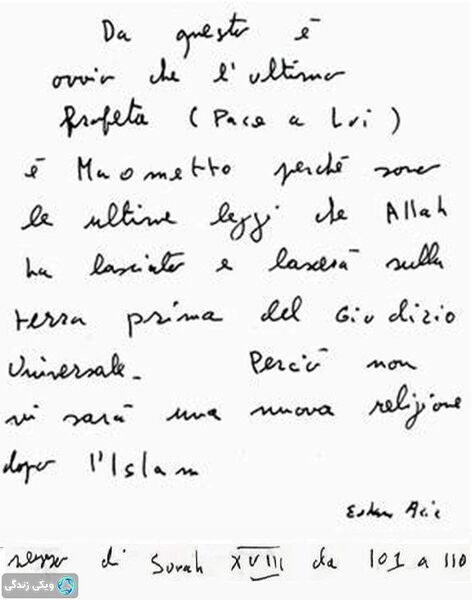 Da questo è
ovvio che l'ultimo
Profeta (Pace a Lui)
è Maometto perché sono
le ultime leggi che Allah
ha lasciato e lascerà sulla
terra prima del Giudizio
Universale. Perciò non
vi sarà una nuova religione
dopo l'Islam
di Surah XVIII da 101 a 110
ویکی زندگی